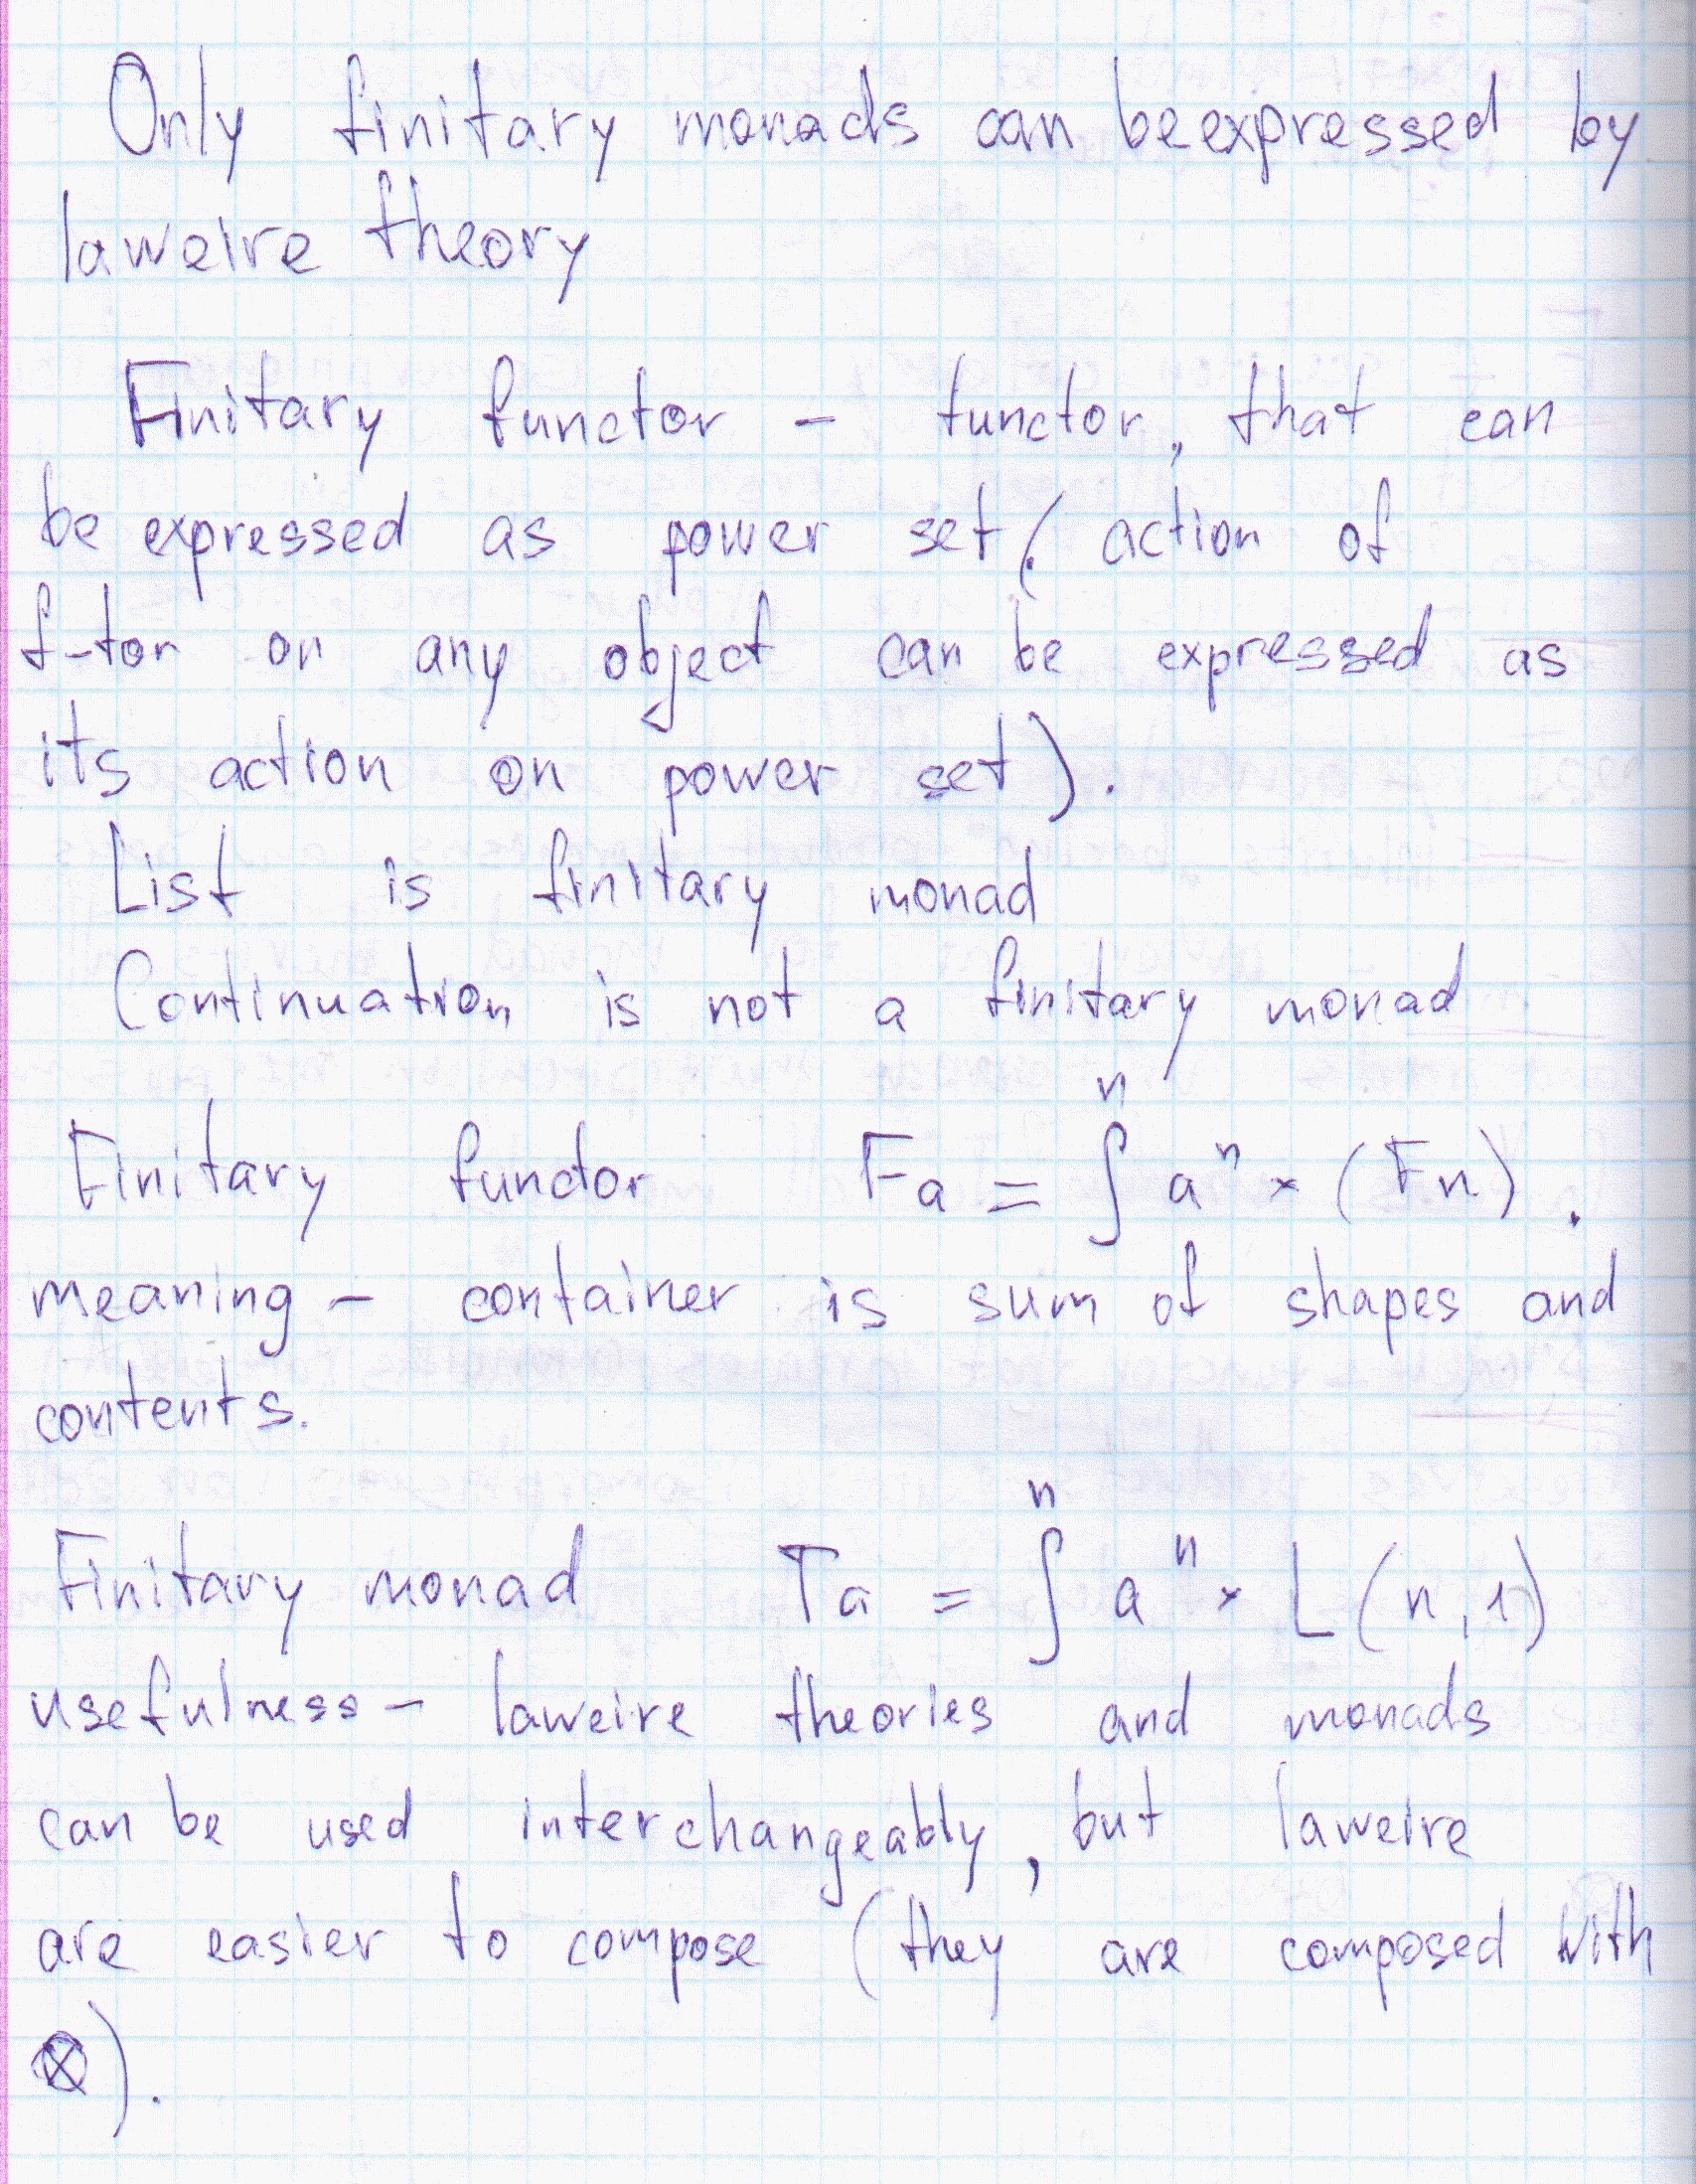 Only finitary monads can be expressed by
laweire theory
Finitary functor – functor, that can
be expressed as power set (action of
f-tor on any object can be expressed as
its action on power set).
List is finitary monad
Continuation is not a finitary monad
Finitary functor Fa = ∫ⁿ aⁿ × (Fn).
meaning – container is sum of shapes and
contents.
Finitary monad Ta = ∫ⁿ aⁿ × L(n,1)
usefulness – laweire theories and monads
can be used interchangeably, but laweire
are easier to compose (they are composed with
⊗).